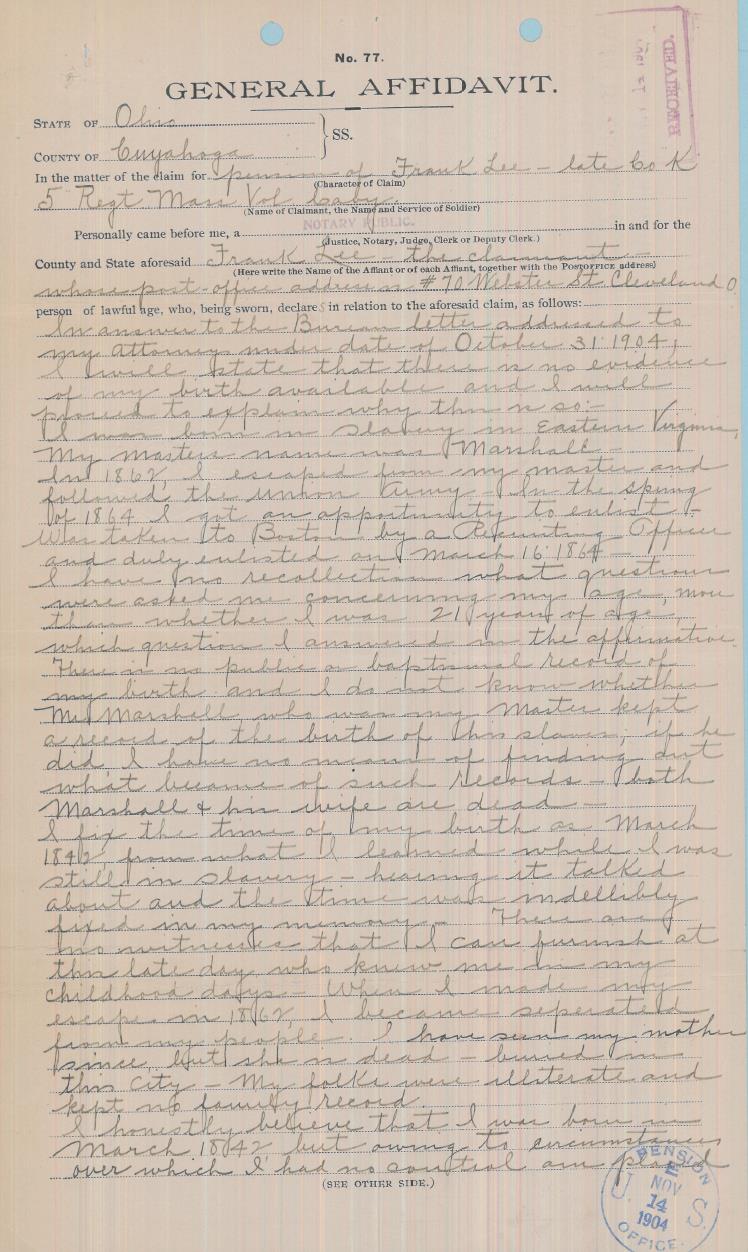 No. 77.
GENERAL AFFIDAVIT.
RECEIVED.
STATE OF Ohio
SS.
COUNTY OF Cuyahoga
In the matter of the claim for pension of Frank Lee - late Co K
(Character of Claim)
5 Regt Mass Vol Cavy.
(Name of Claimant, the Name and Service of Soldier)
NOTARY PUBLIC.
Personally came before me, a in and for the
(Justice, Notary, Judge, Clerk or Deputy Clerk.)
County and State aforesaid Frank Lee - the claimant -
(Here write the Name of the Affiant or of each Affiant, together with the POSTOFFICE address)
whose post-office address is #70 Webster St. Cleveland O
person of lawful age, who, being sworn, declares in relation to the aforesaid claim, as follows:
In answer to the Bureau letter addressed to
my Attorney under date of October 31. 1904,
I will state that there is no evidence
of my birth available and I will
proceed to explain why this is so:-
I was born in slavery in Eastern Virginia,
My masters name was Marshall -
In 1862, I escaped from my master and
followed the Union Army - In the spring
of 1864 I got an opportunity to enlist -
Was taken to Boston by a Recruiting Officer
and duly enlisted on March 16. 1864 -
I have no recollection what questions
were asked me concerning my age, more
than whether I was 21 years of age,
which question I answered in the affirmative.
There is no public or baptismal record of
my birth and I do not know whether
Mr Marshall, who was my Master kept
a record of the birth of his slaves; if he
did, I have no means of finding out
what became of such records - both
Marshall & his wife are dead -
I fix the time of my birth as March
1842, from what I learned while I was
still in slavery - hearing it talked
about and the time was indellibly
fixed in my memory - There are
no witnesses that I can furnish at
this late day who knew me in my
childhood days - When I made my
escape in 1862, I became seperated
from my people. I have seen my mother
since, but she is dead - buried in
this City - My folks were illiterate and
kept no family record.
I honestly believe that I was born in
March 1842, but owing to circumstances
over which I had no control am placed
(SEE OTHER SIDE.)
U. S. PENSION OFFICE.
NOV
14
1904